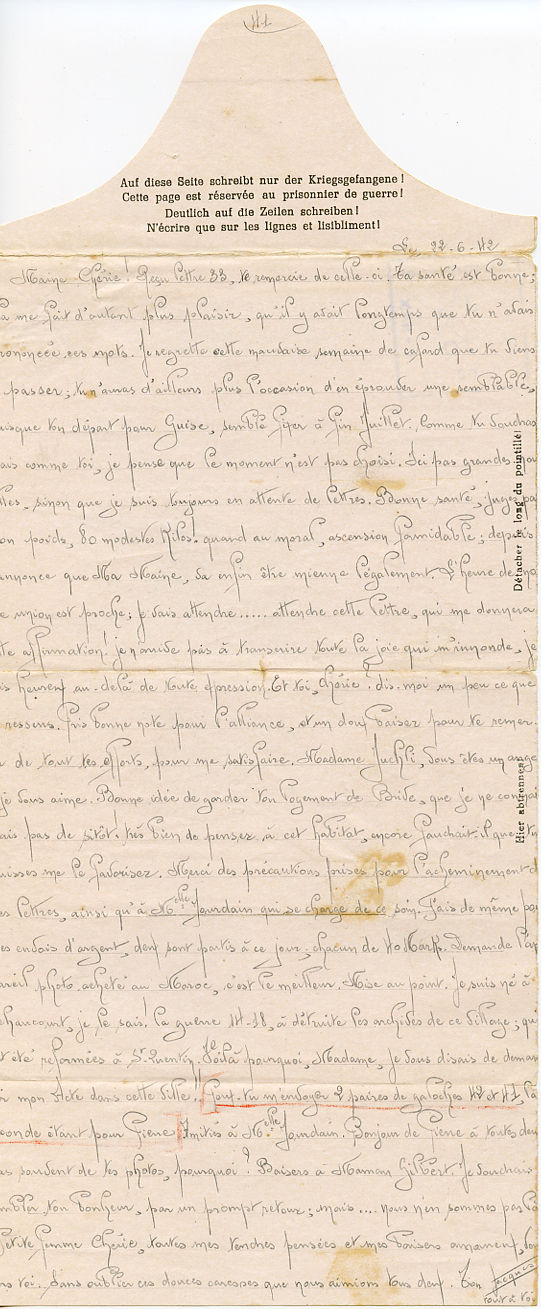 41
Auf diese Seite schreibt nur der Kriegsgefangene!
Cette page est réservée au prisonnier de guerre!
Deutlich auf die Zeilen schreiben!
N'écrire que sur les lignes et lisibliment!
Le 22-6-42
Maine Chérie! Reçu lettre 33, te remercie de celle-ci. Ta santé est bonne;
a me fait d'autant plus plaisir, qu'il y avait longtemps que tu n'avais
rononcée ces mots. Je regrette cette mauvaise semaine de cafard que tu viens
passer; tu n'auras d'ailleurs plus l'occasion d'en éprouver une semblable,
uisque ton départ pour Guise, semble fixer à fin Juillet. Comme tu voudras
ais comme toi, je pense que le moment n'est pas choisi. Ici pas grandes nou
lles, sinon que je suis toujours en attente de lettres. Bonne santé, juges pa
on poids, 80 modestes Kilos. quand au moral, ascension formidable; depuis
annonce que Ma Maine, va enfin être mienne légalement. L'heure de no
e union est proche; je vais attendre..... attendre cette lettre, qui me donnera
te affirmation! je n'arrive pas à transcrire toute la joie qui m'inonde, je
is heureux au-delà de toute expression. Et toi, Chérie, dis-moi un peu ce que
ressens. Pris bonne note pour l'alliance, et un doux baiser pour te remer-
r de tout tes efforts, pour me satisfaire. Madame Juchli, vous êtes un ange
je vous aime. Bonne idée de garder ton logement de Brive, que je ne connai
ais pas de sitôt! très bien de pensez à cet habitat, encore faudrait-il que tu
uisses me le favoriser. Merci des précautions prises pour l'acheminement d
es lettres, ainsi qu'à Melle Jourdain qui se charge de ce soin. Fais de même po
es envois d'argent, deux sont partis à ce jour; chacun de 40 Marks. Demande l'ap
areil photo acheté au Maroc, c'est le meilleur. Mise au point. Je suis né à
haucourt, je le sais! la guerre 14-18, à détruite les archives de ce village; qui
t été reformées à St-Quentin. Voilà pourquoi, Madame, je vous disais de deman
r mon Acte dans cette ville!! Peux-tu m'envoyer 2 paires de galoches 42 et 41, la
conde étant pour Pierre. Amitiés à Melle Jourdain. Bonjour de Pierre à toutes deux
as souvent de tes photos, pourquoi? Baisers à Maman Gilbert. Je voudrais
mbler ton bonheur, par un prompt retour; mais.... nous n'en sommes pas là
Petite femme Chérie, toutes mes tendres pensées et mes baisers
rs toi. Sans oublier ces douces caresses que nous aimions tous deux. Ton Jacques
tout à toi
Détacher le long du pointillé!
Hier abtrennen!